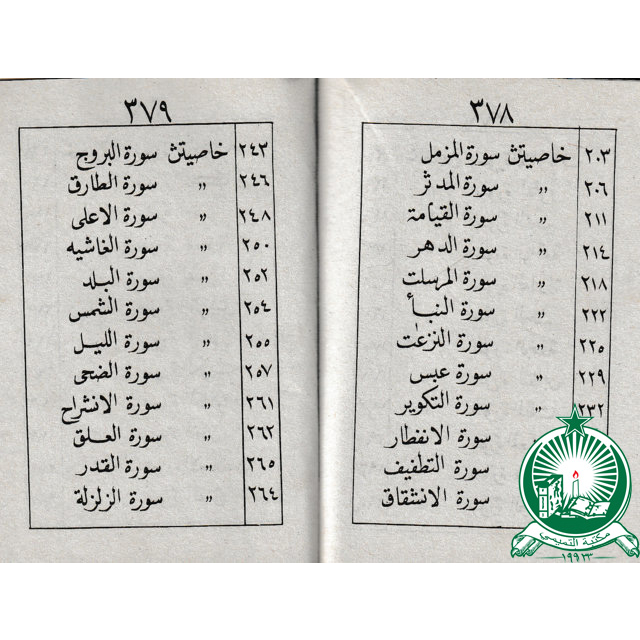 ٣٧٨
٢٠٣ خاصيتن سورة المزمل
٢٠٦ " سورة المدثر
٢١١ " سورة القيامة
٢١٤ " سورة الدهر
٢١٨ " سورة المرسلت
٢٢٢ " سورة النبأ
٢٢٥ " سورة النزعٰت
٢٢٩ " سورة عبس
٢٣٢ " سورة التكوير
سورة الانفطار
سورة التطفيف
سورة الانشقاق
٣٧٩
٢٤٣ خاصيتن سورة البروج
٢٤٦ " سورة الطارق
٢٤٨ " سورة الاعلى
٢٥٠ " سورة الغاشيه
٢٥٢ " سورة البلد
٢٥٤ " سورة الشمس
٢٥٥ " سورة الليل
٢٥٧ " سورة الضحى
٢٦١ " سورة الانشراح
٢٦٢ " سورة العلق
٢٦٥ " سورة القدر
٢٦٤ " سورة الزلزلة
مكتبة التميمي